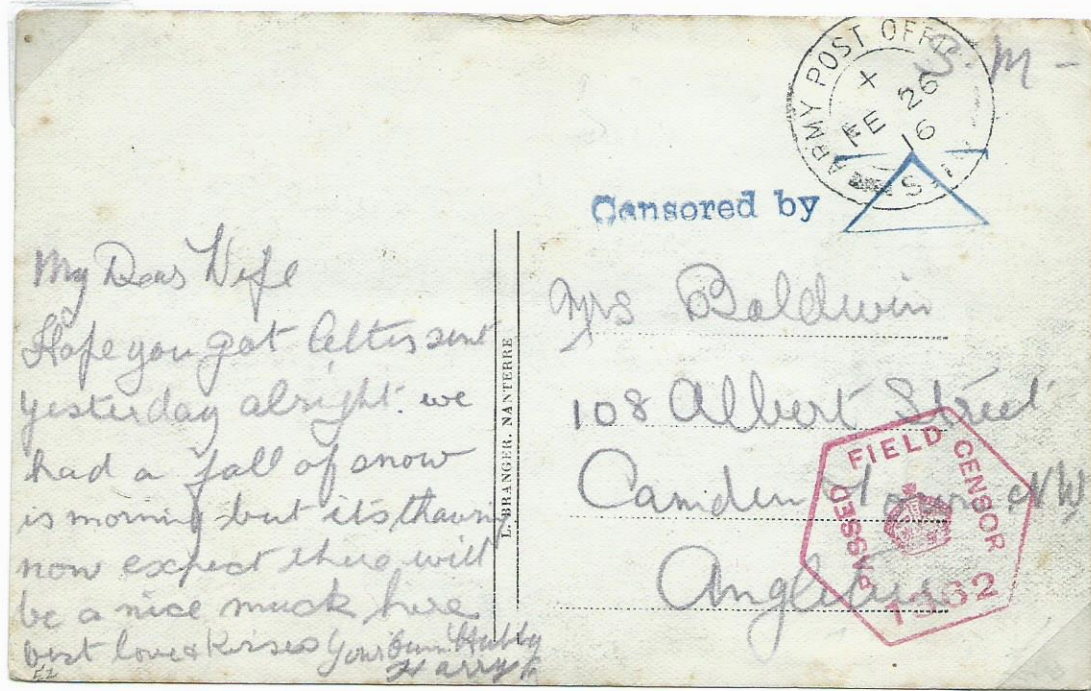 ARMY POST OFFICE
X
FE 26
16
S.
S. M -
Censored by
My Dear Wife
Hope you got letters sent
yesterday alright. we
had a fall of snow
is morning but its thawing
now expect there will
be a nice muck here
best love & Kisses Your Own Hubby
Harry
E2
L. BRANGER, NANTERRE
Mrs Baldwin
108 Albert Street
Camden Town NW
Angleterre
PASSED FIELD CENSOR
1362